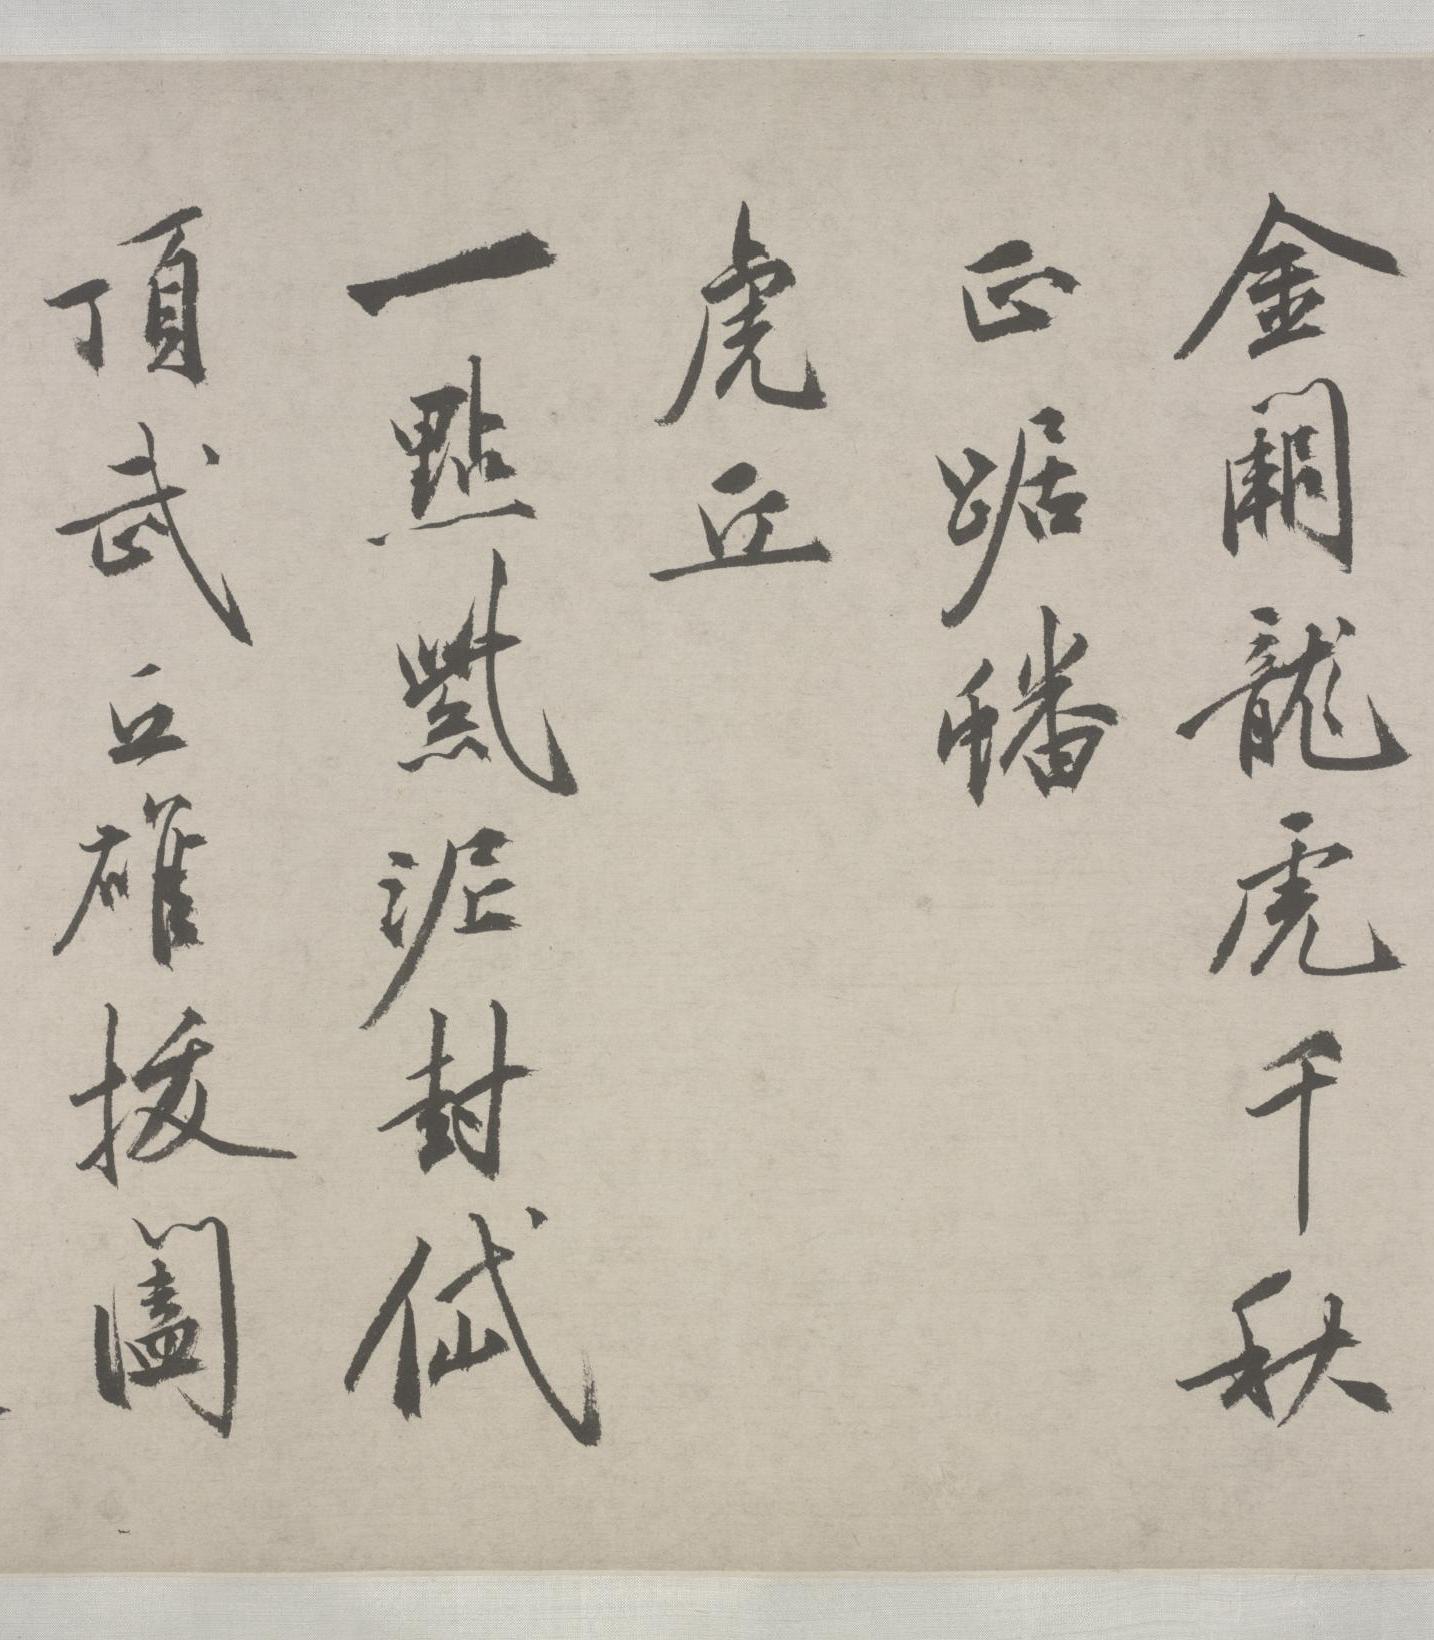 金闕龍虎千秋
正踞蟠
虎丘
一點紫泥封岱
頂武丘雄拔闔